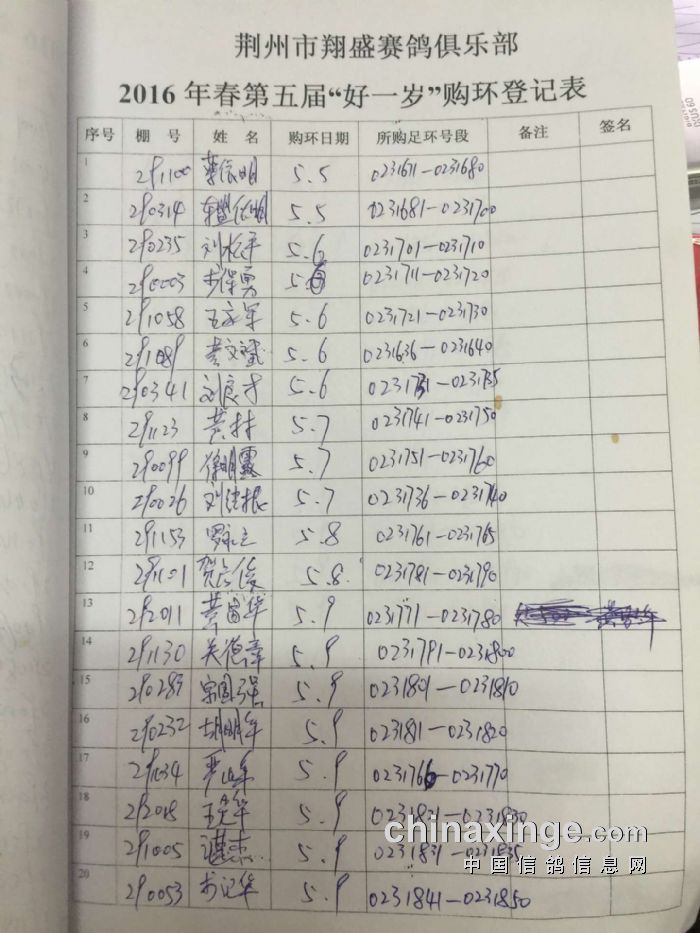 荆州市翔盛赛鸽俱乐部
2016年春第五届“好一岁”购环登记表
序号 棚 号 姓 名 购环日期 所购足环号段 备注 签名
1 291100 5.5 0231671-0231680
2 290314 5.5 0231681-0231700
3 290235 5.6 0231701-0231710
4 290003 0231711-0231720
5 291058 5.6 0231721-0231730
6 291089 黄文斌 5.6 0231636-0231640
7 290341 刘良才 5.6 0231731-0231735
8 291123 黄村 5.7 0231741-0231750
9 290099 徐明露 5.7 0231751-0231760
10 290026 5.7 0231736-0231740
11 291153 5.8 0231761-0231765
12 291101 5.8 0231781-0231790
13 292011 黄国华 5.9 0231771-0231780
14 291130 吴德章 5.9 0231791-0231800
15 290283 宋国强 5.9 0231801-0231810
16 290232 胡明华 5.9 023181-0231820
17 291034 5.9 0231766-0231770
18 292018 5.9 0231821-0231830
19 291005 5.9 0231831-0231835
20 290053 5.9 0231841-0231850
chinaxinge.com
中国信鸽信息网